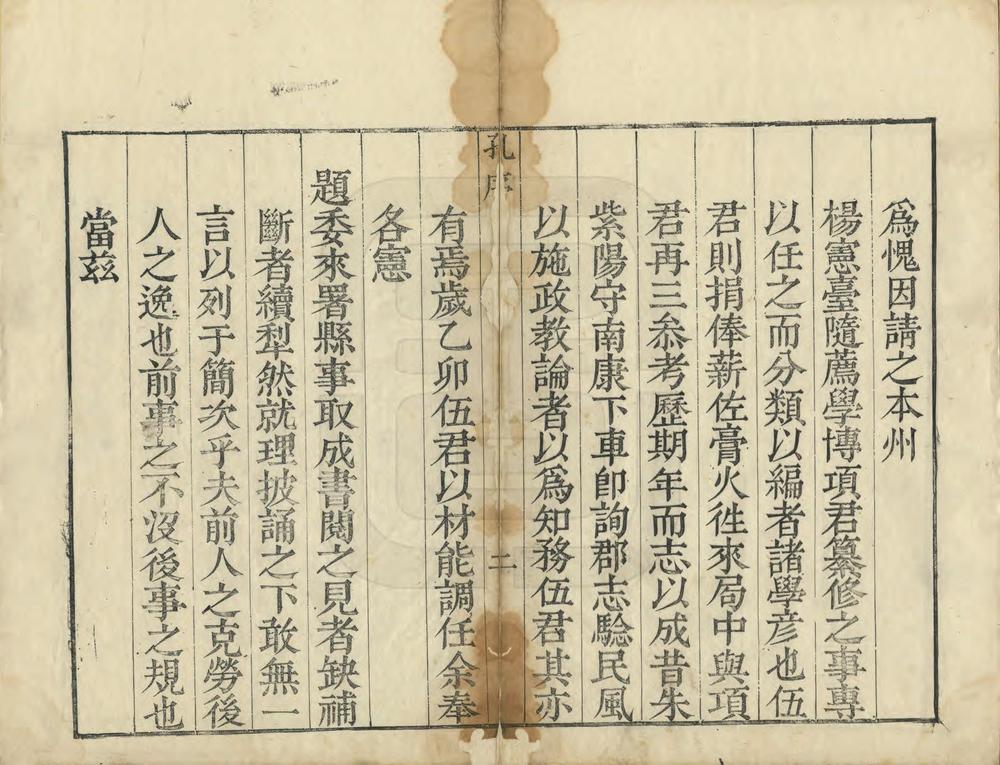 爲愧因請之本州
楊憲臺隨薦學博項君纂修之事專
以任之而分類以編者諸學彦也伍
君則捐俸薪佐膏火徃來局中與項
君再三叅考歷期年而志以成昔朱
紫陽守南康下車卽詢郡志騐民風
以施政教論者以爲知務伍君其亦
孔序
二
有焉歲乙卯伍君以材能調任余奉
各憲
題委來署縣事取成書閱之見者缺補
斷者續犁然就理披誦之下敢無一
言以列于簡次乎夫前人之克勞後
人之逸也前事之不沒後事之規也
當兹